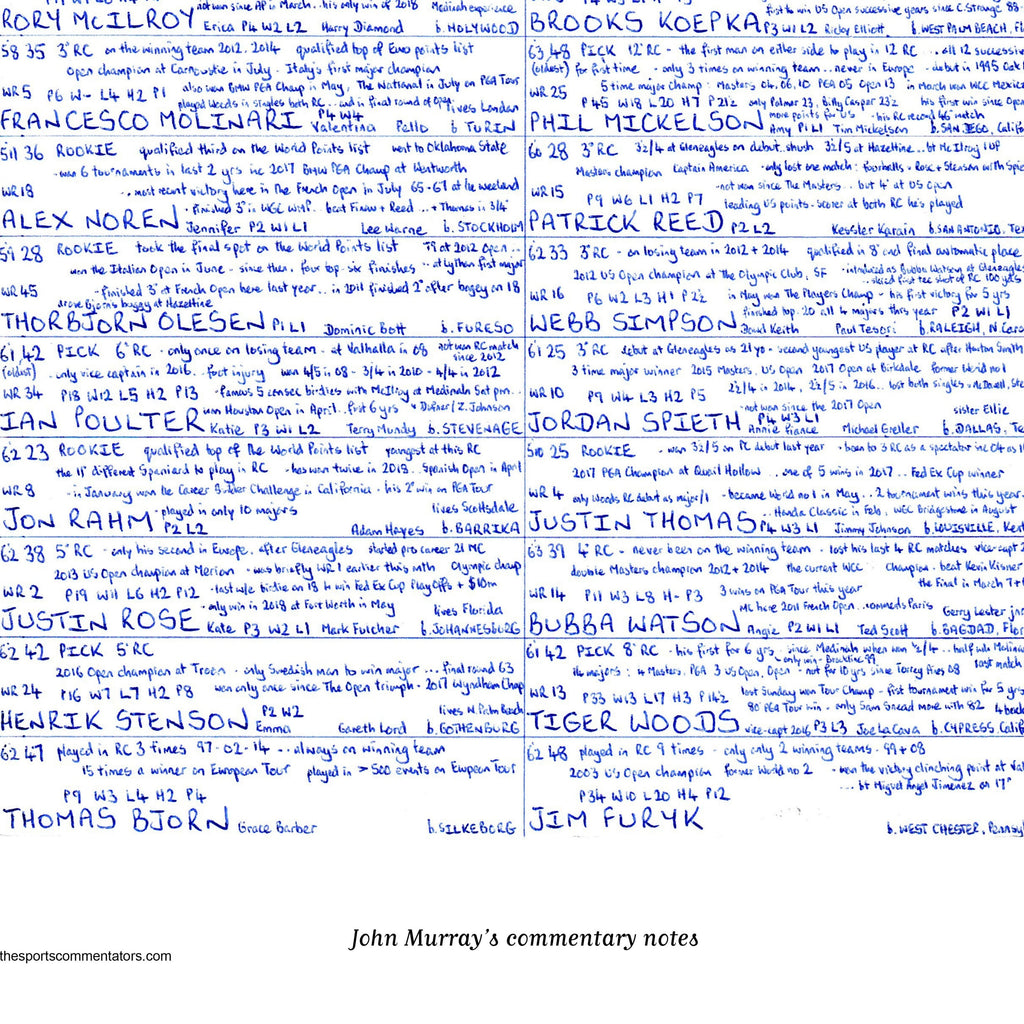 not won since AP in March.. his only win of 2018 Medinah experience
RORY McILROY Erica P4 W2 L2 Harry Diamond b. HOLYWOOD
58 35 3° RC on the winning team 2012, 2014 qualified top of Euro points list
Open champion at Carnoustie in July. Italy's first major champion
WR 5 P6 W- L4 H2 P1 also won BMW PGA Champ in May, The National in July on PGA Tour
played Woods in singles both RC ...and in final round of Open lives London
FRANCESCO MOLINARI P4 W4 Valentina Pello b TURIN
36 ROOKIE qualified third on the World Points list went to Oklahoma State
won 6 tournaments in last 2 yrs inc 2017 BMW PGA Champ at Wentworth
WR 18 ..most recent victory here in the French Open in July 65-67 at the weekend
finished 3° in WGC beat Finau + Reed ...+ Thomas in 3/4
ALEX NOREN Jennifer P2 W1 L1 Lee Warne b. STOCKHOLM
59 28 ROOKIE took the final spot on the World Points list T9 at 2012 Open..
won the Italian Open in June - since then, four top-six finishes
WR 45 - finished 3° at French Open here last year.. in 2011 finished 2° after bogey on 18
drove Bjorn's buggy at Hazeltine
THORBJORN OLESEN P1 L1 Dominic Bott b. FURESO
61 42 PICK 6° RC - only once on losing team - at Valhalla in 08 not won RC match since 2012
(oldest) - only vice captain in 2016.. foot injury won 4/5 in 08 - 3/4 in 2010 - 4/4 in 2012
WR 34 P18 W12 L5 H2 P13 - famous 5 consec birdies with McIlroy at Medinah Sat pm..
won Houston Open in April. first 6 yrs v Dufner/Z.Johnson
IAN POULTER Katie P3 W1 L2 Terry Mundy b. STEVENAGE
62 23 ROOKIE qualified top of the World Points list youngest at this RC
the 11° different Spaniard to play in RC - has won twice in 2018.. Spanish Open in April
WR 8 - in January won the Career Builder Challenge in California - his 2° win on PGA Tour
- played in only 10 majors lives Scottsdale
JON RAHM P2 L2 Adam Hayes b. BARRIKA
62 38 5° RC - only his second in Europe, after Gleneagles started pro career 21 MC
2013 US Open champion at Merion - was briefly WR1 earlier this mth Olympic champ
WR 2 P19 W11 L6 H2 P12 - last w/e birdie on 18 to win Fed Ex Cup Play Offs + $10m
- only win in 2018 at Fort Worth in May lives Florida
JUSTIN ROSE Kate P3 W2 L1 Mark Fulcher b. JOHANNESBURG
62 42 PICK 5° RC
2016 Open champion at Troon - only Swedish man to win major ... final round 63
WR 24 P16 W7 L7 H2 P8 won only once since The Open triumph - 2017 Wyndham Chap
HENRIK STENSON P2 W2 Emma Gareth Lord lives N. Palm Beach b. GOTHENBURG
62 47 played in RC 3 times 97-02-14 ...always on winning team
15 times a winner on European Tour played in >500 events on European Tour
P9 W3 L4 H2 P4
THOMAS BJORN Grace Barber b. SILKEBORG
first to win US Open successive years since C. Strange 88-
BROOKS KOEPKA P3 W1 L2 Ricky Elliott b. WEST PALM BEACH, Fl
63 48 PICK 12° RC - the first man on either side to play in 12 RC ...all 12 successive
(oldest) for first time - only 3 times on winning team...never in Europe - debut in 1995 Oak
WR 25 5 time major champ: Masters 04.06.10 PGA 05 Open 13 in March won WCC Mexico
P45 W18 L20 H7 P21½ only Palmer 23, Billy Casper 23½ his first win since Open
more points for US - his RC record 46° match
PHIL MICKELSON Amy P1 L1 Tim Mickelson b. SAN DIEGO, Calif
60 28 3° RC 3½/4 at Gleneagles on debut. shush 3½/5 at Hazeltine...bt McIlroy 1UP
Masters champion Captain America - only lost one match: fourballs - Rose + Stenson with Spie
WR 15 - not won since The Masters... but 4° at US Open
P9 W6 L1 H2 P7 leading US points-scorer at both RC he's played
PATRICK REED P2 L2 Kessler Karain b. SAN ANTONIO, Tex
62 33 3° RC - on losing team in 2012 + 2014 qualified in 8° and final automatic place
2012 US Open champion at The Olympic Club, SF - introduced as Bubba Watson at Gleneagles
..skied first tee shot of RC 100 yds
WR 16 P6 W2 L3 H1 P2½ in May won The Players Champ - his first victory for 5 yrs
finished top 20 all 4 majors this year P2 W1 L1
WEBB SIMPSON Dowd Keith Paul Tesori b. RALEIGH, N Caro
61 25 3° RC debut at Gleneagles as 21 yo - second youngest US player at RC after Horton Smith
3 time major winner 2015 Masters, US Open 2017 Open at Birkdale former World no 1
WR 10 P9 W4 L3 H2 P5 2½/4 in 2014, 2½/5 in 2016.. lost both singles - McDowell, Ste
- not won since the 2017 Open sister Ellie
JORDAN SPIETH P4 W3 L1 Annie fiance Michael Greller b. DALLAS, Te
25 ROOKIE - won 3½/5 on PC debut last year - been to 3 RC as a spectator inc 04 as 11
2017 PGA Champion at Quail Hollow ...one of 5 wins in 2017.. Fed Ex Cup winner
WR 4 only Woods RC debut as major/1 - became World no 1 in May ...2 tournament wins this year
..Honda Classic in Feb, WGC Bridgestone in August
JUSTIN THOMAS P4 W3 L1 Jimmy Johnson b. LOUISVILLE, Kent
63 39 4° RC - never been on the winning team - lost his last 4 RC matches vice-capt 2
double Masters champion 2012 + 2014 the current WCC Champion - beat Kevin Kisner
WR 14 P11 W3 L8 H- P3 3 wins on PGA Tour this year the final in March 7+
MC here 2011 French Open ..commends Paris Gerry Lester jnr
BUBBA WATSON Angie P2 W1 L1 Ted Scott b. BAGDAD, Flor
61 42 PICK 8° RC - his first for 6 yrs - since Medinah when won ½/4 ..half w/b Molina
- only win - Brookline 99
14 majors: 4 Masters, PGA 3 US Open, Open - not for 10 yrs since Torrey Pines 08 last match
WR 13 P33 W13 L17 H3 P14½ last Sunday won Tour Champ - first tournament win for 5 yrs
80° PGA Tour win - only Sam Snead more with 82 4 back
TIGER WOODS vice-capt 2016 P3 L3 Joe LaCava b. CYPRESS, Calif
62 48 played in RC 9 times - only only 2 winning teams - 99 + 08
2003 US Open champion former World no 2 - won the victory clinching point at Val
... bt Miguel Angel Jimenez on 17°
P34 W10 L20 H4 P12
JIM FURYK b. WEST CHESTER, Pennsyl
John Murray's commentary notes
thesportscommentators.com